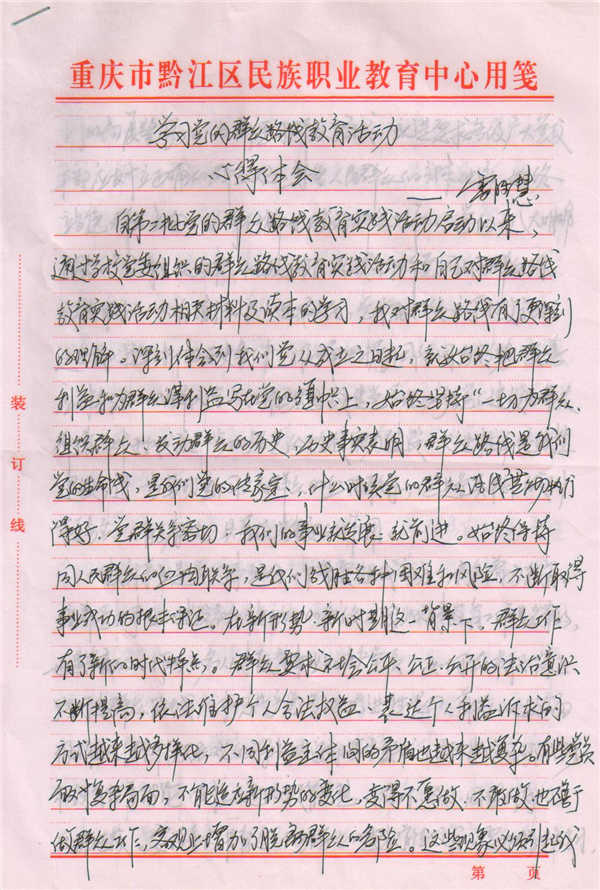 重庆市黔江区民族职业教育中心用笺
学习党的群众路线教育活动
心得体会
自第二批党的群众路线教育实践活动启动以来，
通过学校党委组织的群众路线教育实践活动和自己对群众路线
教育实践活动相关材料及读本的学习，我对群众路线有了更深刻
的理解。深刻体会到我们党从成立之日起，就始终把群众
利益和为群众谋利益写在党的旗帜上，始终坚持“一切为群众、
组织群众、发动群众的历史，历史事实表明，群众路线是我们
党的生命线，是我们党的传家宝，什么时候党的群众路线执行
得好，党群关系密切，我们的事业就发展、就前进。始终保持
同人民群众的血肉联系，是我们战胜各种困难和风险，不断取得
事业成功的根本保证。在新形势、新时期这一背景下，群众工作
有了新的时代特点。群众要求社会公平、公正、公开的法治意识
不断提高，依法维护个人合法权益、表达个人利益诉求的
方式越来越多样化，不同利益主体间的矛盾也越来越复杂。有些党员
面对复杂局面，不能适应新形势的变化，变得不愿做、不敢做也不善于
做群众工作，客观上增加了脱离群众的危险。这些现象必须引起我
装
订
线
第 页